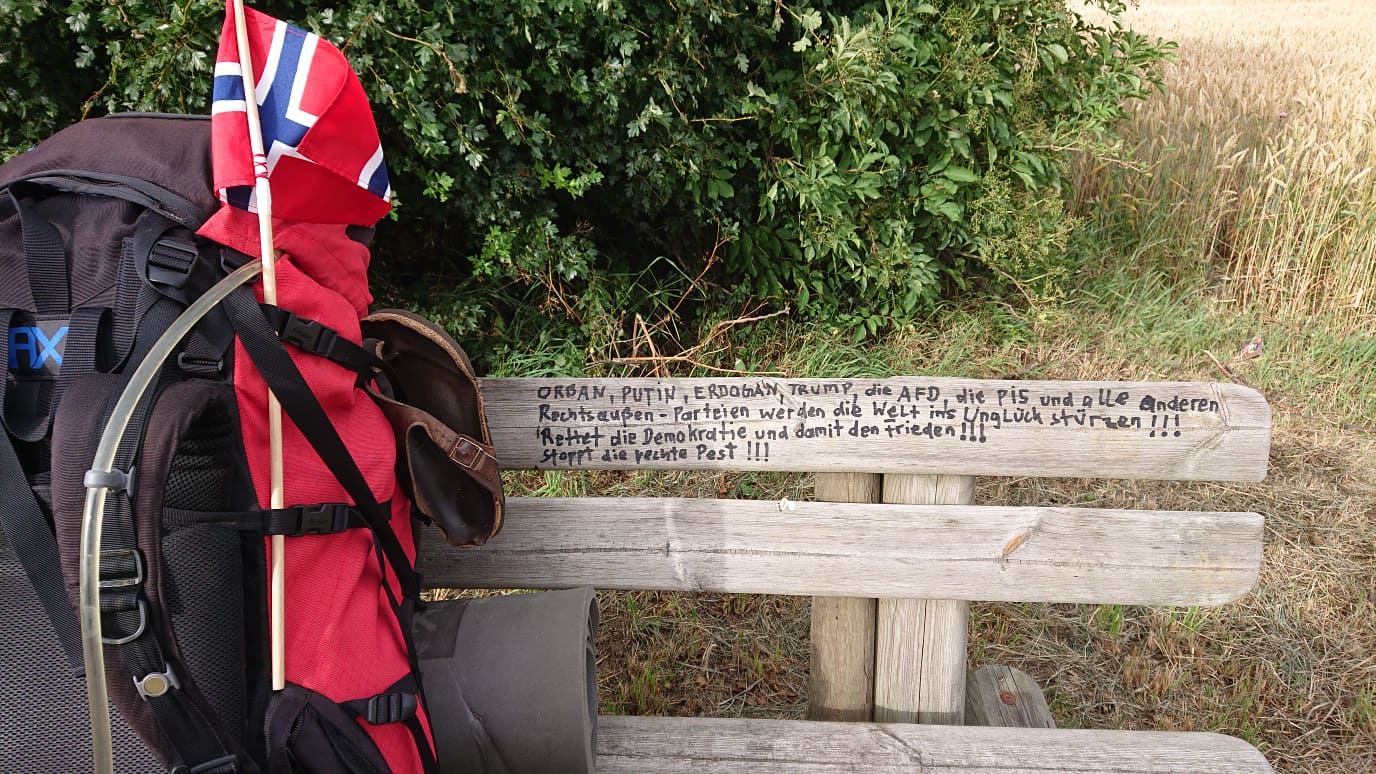 AX
ORBAN, PUTIN, ERDOGAN, TRUMP, die AFD, die PIS und alle anderen
Rechtsaußen-Parteien werden die Welt ins Unglück stürzen!!!
Rettet die Demokratie und damit den Frieden!!!
Stoppt die rechte Pest !!!